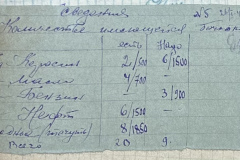 Сведения
№5
Количество имеющихся бочкар
есть Надо
Керосин 2/500 6/1500
Масла 4/700 —
Бензин — 3/900
Нефть 6/1500
8/1850
Всего 20 9